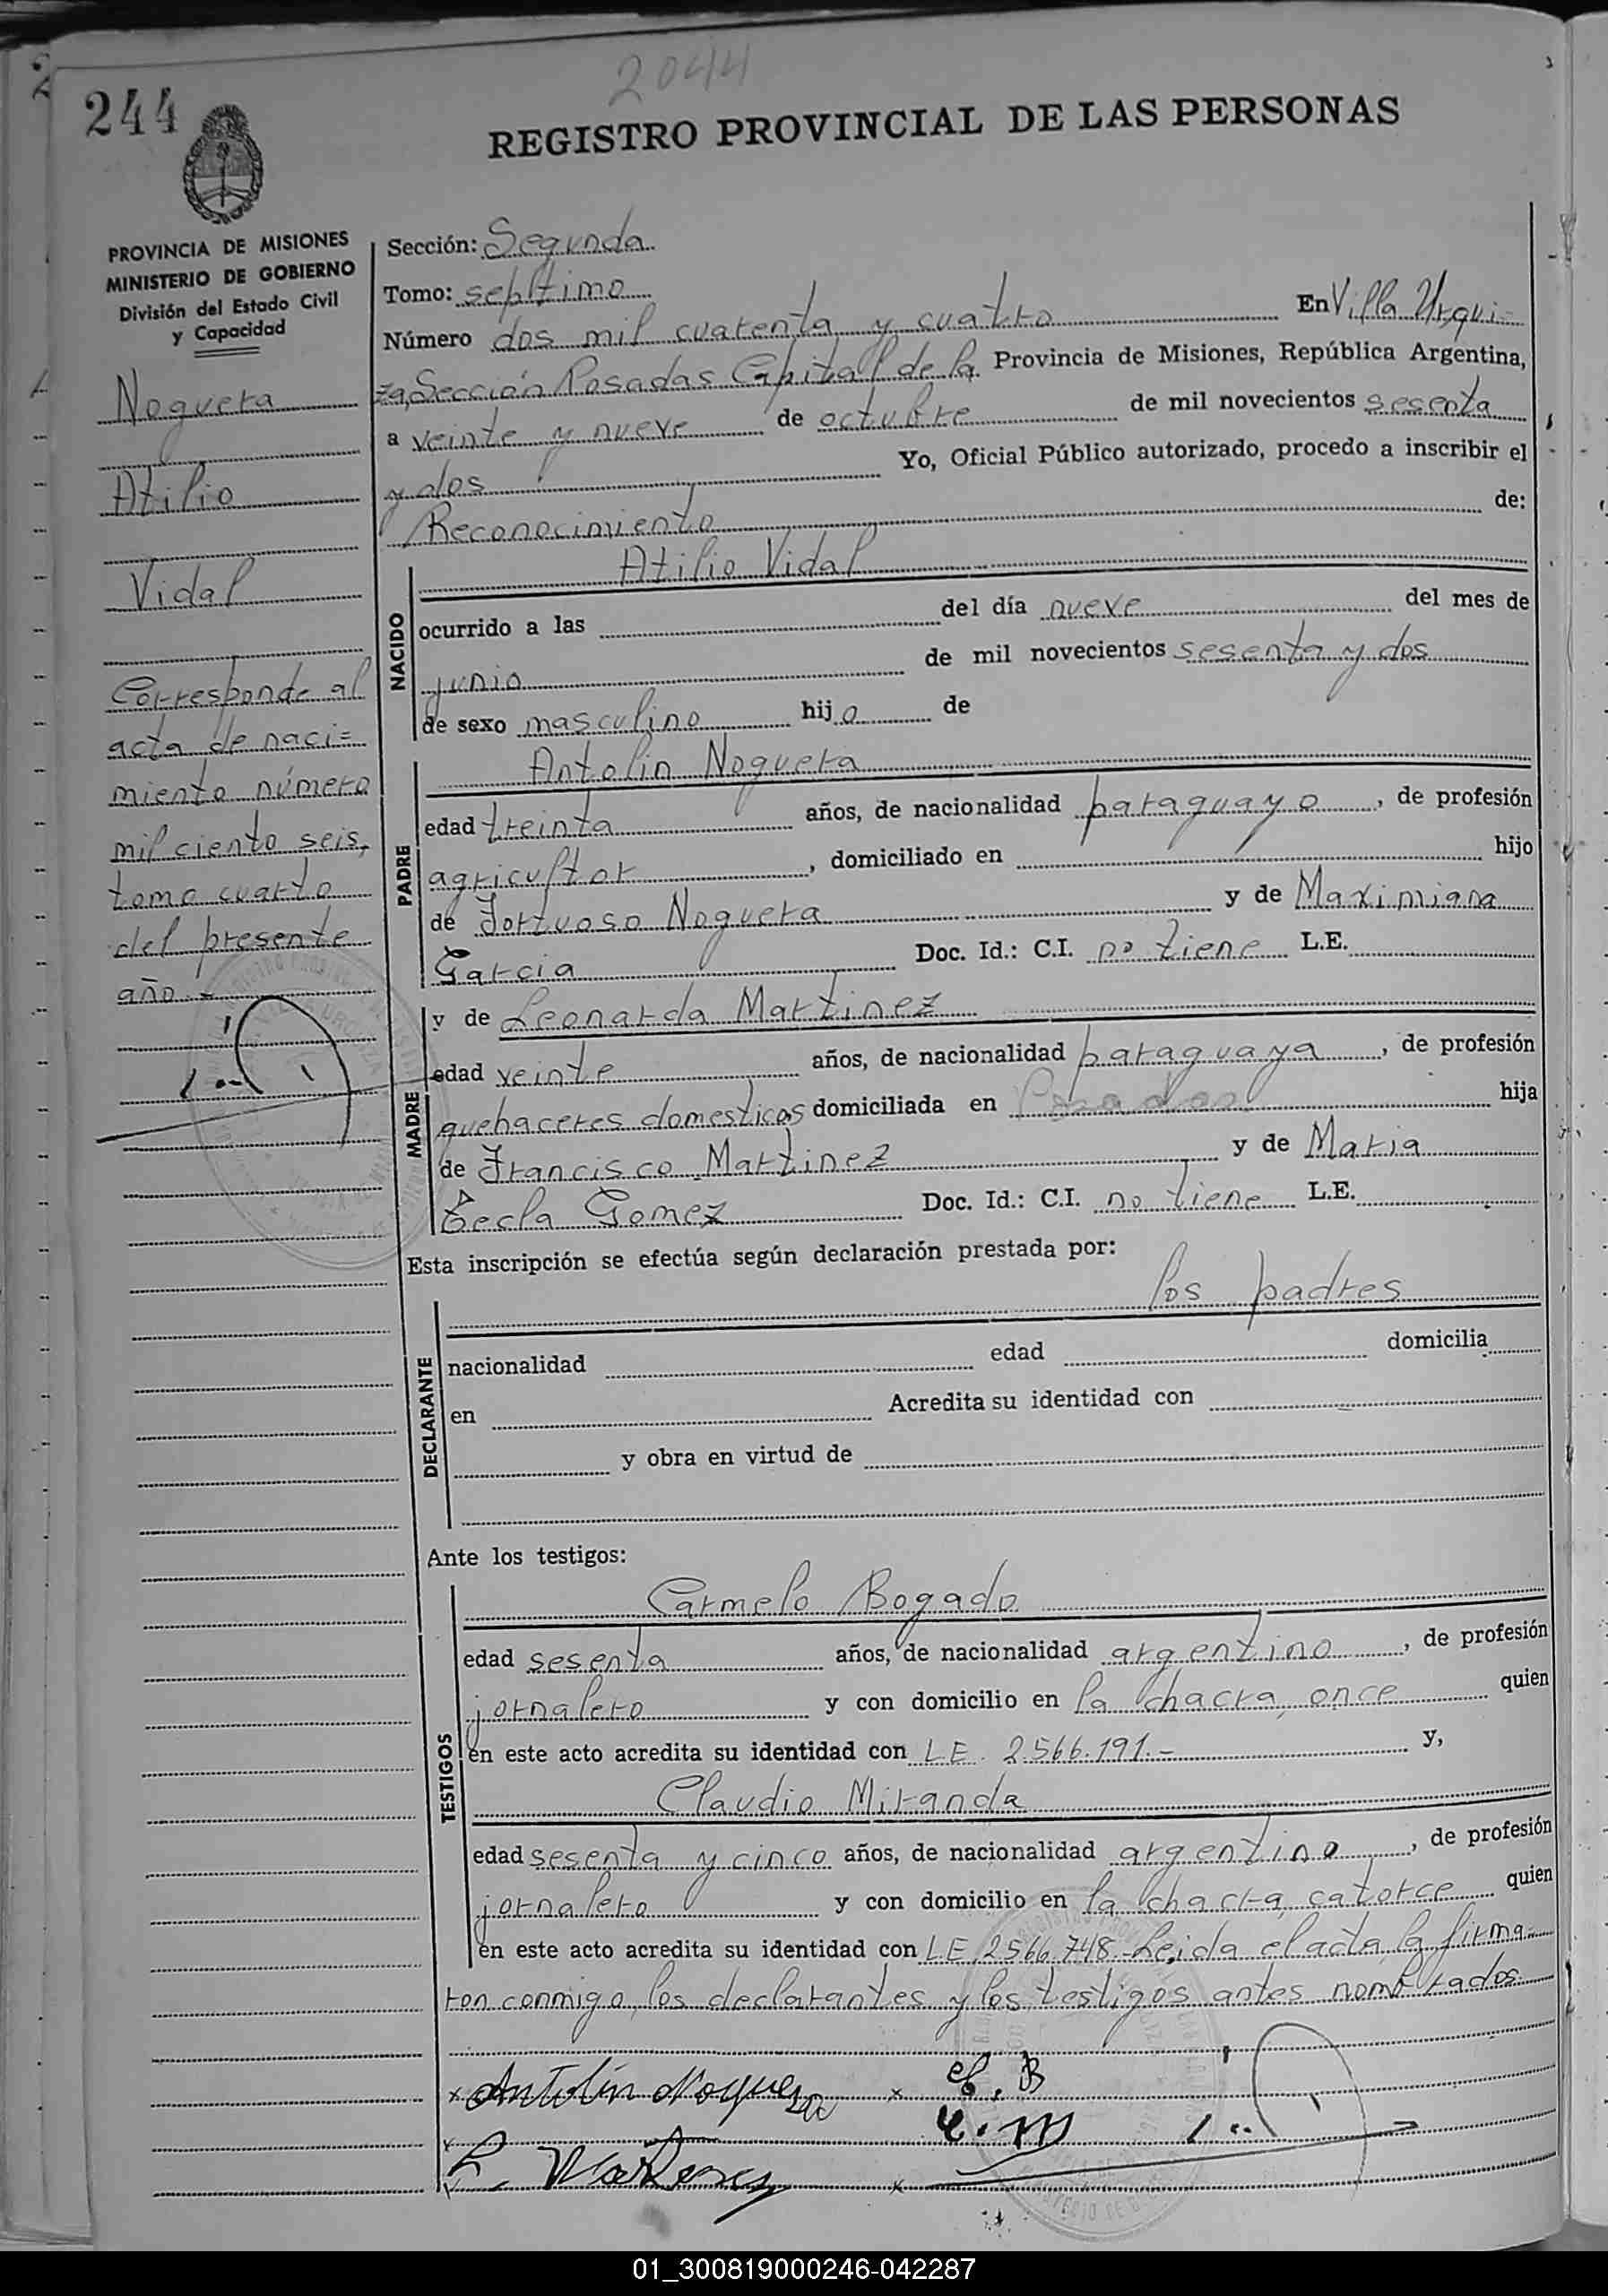 2044
244
REGISTRO PROVINCIAL DE LAS PERSONAS
PROVINCIA DE MISIONES
MINISTERIO DE GOBIERNO
División del Estado Civil
y Capacidad
Noguera
Atilio
Vidal
Corresponde al
acta de naci=
miento número
mil ciento seis,
tomo cuarto
del presente
año.-
Sección: Segunda
Tomo: sepltimo
Número dos mil cuarenta y cuatro En Villa Urqui-
za, Sección Posadas Capital de la Provincia de Misiones, República Argentina,
a veinte y nueve de octubre de mil novecientos sesenta
y dos Yo, Oficial Público autorizado, procedo a inscribir el
Reconocimiento de:
NACIDO
Atilio Vidal
ocurrido a las del día nueve del mes de
junio de mil novecientos sesenta y dos
de sexo masculino hijo de
PADRE
Antolin Noguera
edad treinta años, de nacionalidad paraguayo, de profesión
agricultor, domiciliado en hijo
de Fortuoso Noguera y de Maximiana
Garcia Doc. Id.: C.I. no tiene L.E.
MADRE
y de Leonarda Martinez
edad veinte años, de nacionalidad paraguaya, de profesión
quehaceres domesticos domiciliada en Posadas hija
de Francisco Martinez y de Maria
Tecla Gomez Doc. Id.: C.I. no tiene L.E.
Esta inscripción se efectúa según declaración prestada por:
DECLARANTE
los padres
nacionalidad edad domicilia
en Acredita su identidad con
y obra en virtud de
Ante los testigos:
TESTIGOS
Carmelo Bogado
edad sesenta años, de nacionalidad argentino, de profesión
jornalero y con domicilio en la chacra once quien
en este acto acredita su identidad con LE. 2.566.191.- y,
Claudio Miranda
edad sesenta y cinco años, de nacionalidad argentino, de profesión
jornalero y con domicilio en la chacra catorce quien
en este acto acredita su identidad con LE 2566.748.- Leida el acta, la firma-
ron conmigo, los declarantes y los testigos antes nombrados.
x Antolin Noguera x C. B
x L. Martinez C. M
x
01_300819000246-042287